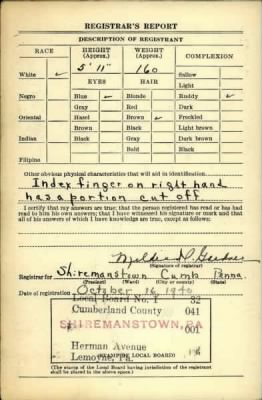 REGISTRAR'S REPORT
DESCRIPTION OF REGISTRANT
RACE HEIGHT (Approx.) WEIGHT (Approx.) COMPLEXION
5' 11" 160
White ✓ Sallow
EYES HAIR Light
Negro Blue ✓ Blonde Ruddy ✓
Gray Red Dark
Oriental Hazel Brown ✓ Freckled
Brown Black Light brown
Indian Black Gray Dark brown
Bald Black
Filipino
Other obvious physical characteristics that will aid in identification
Index finger on right hand
has a portion cut off
I certify that my answers are true; that the person registered has read or has had
read to him his own answers; that I have witnessed his signature or mark and that
all of his answers of which I have knowledge are true, except as follows:
(Signature of registrar)
Registrar for Shiremanstown Cumb Penna.
(Precinct) (Ward) (City or county) (State)
Date of registration October 16, 1940
Local Board No. 1 32
Cumberland County 041
SHIREMANSTOWN, PA
001
Herman Avenue
Lemoyne, Pa.
(STAMP OF LOCAL BOARD)
(The stamp of the Local Board having jurisdiction of the registrant
shall be placed in the above space.)